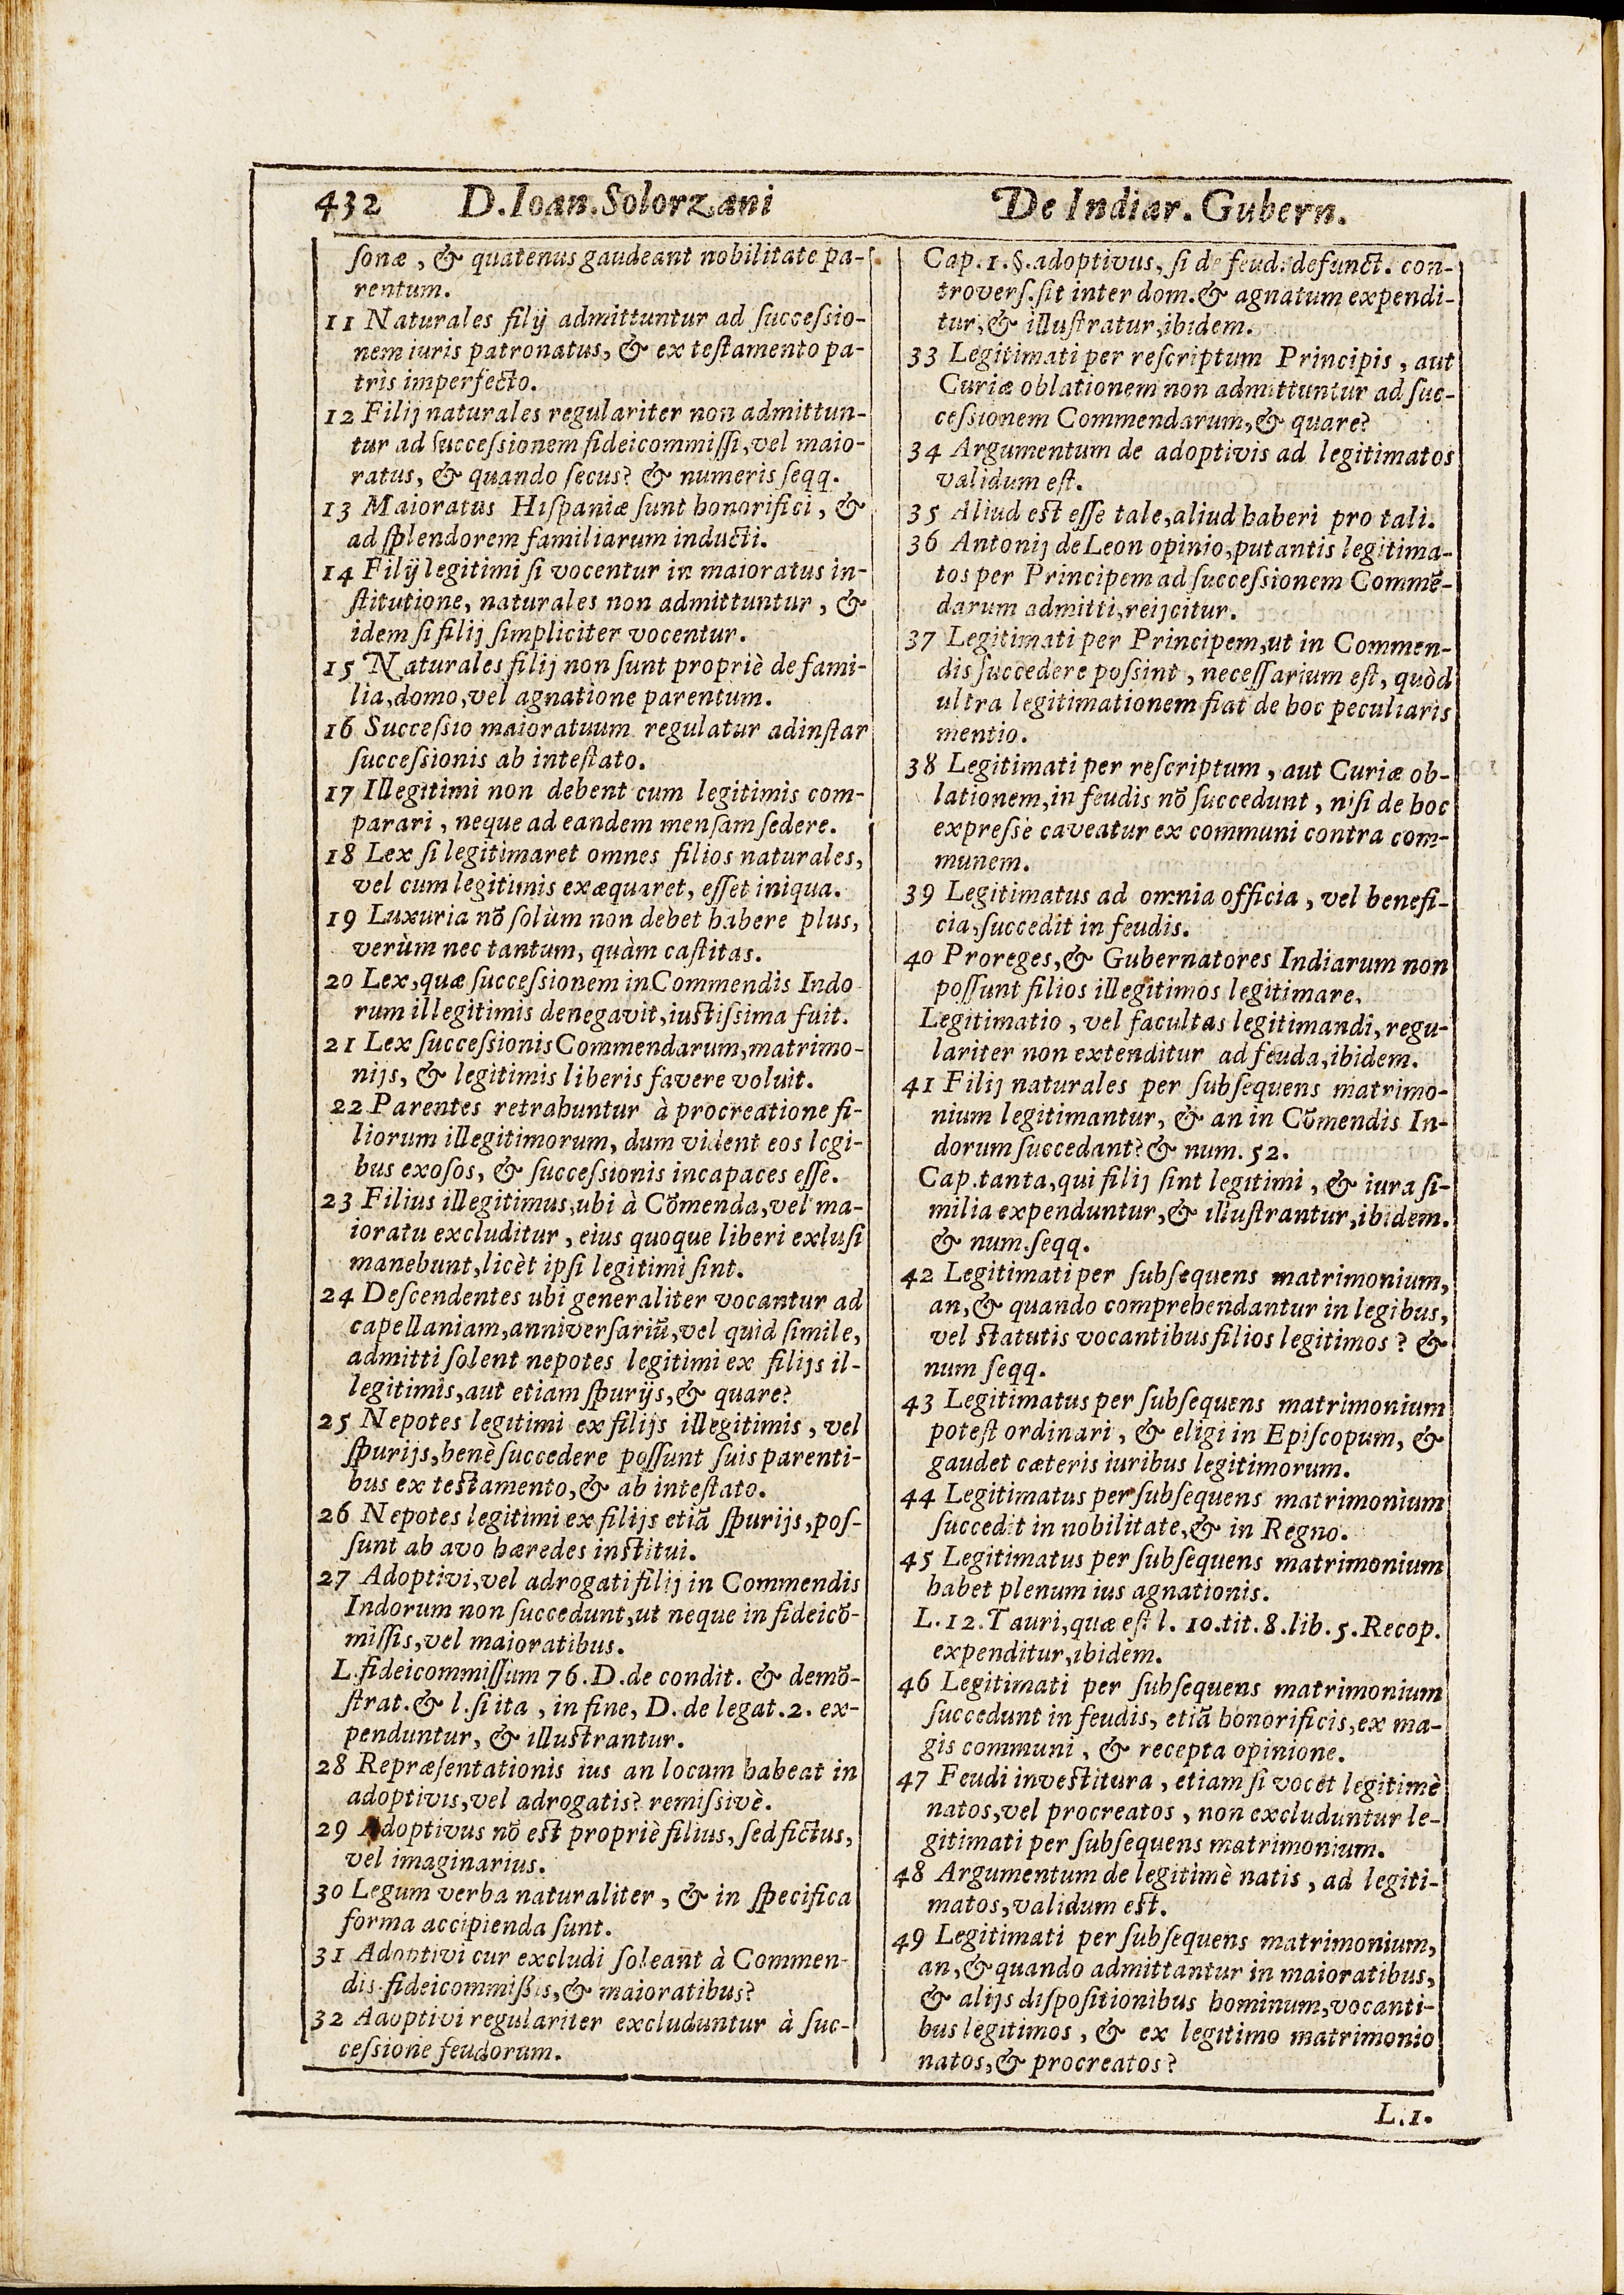 432 D.Ioan.Solorzani De Indiar. Gubern.
ſonæ, & quatenus gaudeant nobilitate pa-
rentum.
11 Naturales filij admittuntur ad ſucceſsio-
nem iuris patronatus, & ex teſtamento pa-
tris imperfecto.
12 Filij naturales regulariter non admittun-
tur ad ſucceſsionem fideicommiſſi, vel maio-
ratus, & quando ſecus? & numeris ſeqq.
13 Maioratus Hiſpaniæ ſunt honorifici, &
ad ſplendorem familiarum inducti.
14 Filij legitimi ſi vocentur in maioratus in-
ſtitutione, naturales non admittuntur, &
idem ſi filij ſimpliciter vocentur.
15 Naturales filij non ſunt propriè de fami-
lia, domo, vel agnatione parentum.
16 Succeſsio maioratuum regulatur adinſtar
ſucceſsionis ab inteſtato.
17 Illegitimi non debent cum legitimis com-
parari, neque ad eandem menſam ſedere.
18 Lex ſi legitimaret omnes filios naturales,
vel cum legitimis exæquaret, eſſet iniqua.
19 Luxuria nõ ſolùm non debet habere plus,
verùm nec tantum, quàm caſtitas.
20 Lex, quæ ſucceſsionem in Commendis Indo
rum illegitimis denegavit, iustiſsima fuit.
21 Lex ſucceſsionis Commendarum, matrimo-
nijs, & legitimis liberis favere voluit.
22 Parentes retrahuntur à procreatione fi-
liorum illegitimorum, dum vident eos legi-
bus exoſos, & ſucceſsionis incapaces eſſe.
23 Filius illegitimus, ubi à Cõmenda, vel ma-
ioratu excluditur, eius quoque liberi exluſi
manebunt, licèt ipſi legitimi ſint.
24 Deſcendentes ubi generaliter vocantur ad
capellaniam, anniverſariũ, vel quid ſimile,
admitti ſolent nepotes legitimi ex filijs il-
legitimis, aut etiam ſpurijs, & quare?
25 Nepotes legitimi ex filijs illegitimis, vel
ſpurijs, benè ſuccedere poſſunt ſuis parenti-
bus ex testamento, & ab inteſtato.
26 Nepotes legitimi ex filijs etiã ſpurijs, poſ-
ſunt ab avo hæredes institui.
27 Adoptivi, vel adrogati filij in Commendis
Indorum non ſuccedunt, ut neque in fideicõ-
miſſis, vel maioratibus.
L. fideicommiſſum 76. D. de condit. & demõ-
ſtrat. & l. ſi ita, in fine, D. de legat. 2. ex-
penduntur, & illustrantur.
28 Repræſentationis ius an locum habeat in
adoptivis, vel adrogatis? remiſsivè.
29 Adoptivus nõ est propriè filius, ſed fictus,
vel imaginarius.
30 Legum verba naturaliter, & in ſpecifica
forma accipienda ſunt.
31 Adoptivi cur excludi ſoleant à Commen-
dis, fideicommiſsis, & maioratibus?
32 Adoptivi regulariter excluduntur à ſuc-
ceſsione feudorum.
Cap. 1. §. adoptivus, ſi de feud. defunct. con-
troverſ. ſit inter dom. & agnatum expendi-
tur, & illuſtratur, ibidem.
33 Legitimati per reſcriptum Principis, aut
Curiæ oblationem non admittuntur ad ſuc-
ceſsionem Commendarum, & quare?
34 Argumentum de adoptivis ad legitimatos
validum eſt.
35 Aliud est eſſe tale, aliud haberi pro tali.
36 Antonij de Leon opinio, putantis legitima-
tos per Principem ad ſucceſsionem Commẽ-
darum admitti, reijcitur.
37 Legitimati per Principem, ut in Commen-
dis ſuccedere poſsint, neceſſarium eſt, quòd
ultra legitimationem fiat de hoc peculiaris
mentio.
38 Legitimati per reſcriptum, aut Curiæ ob-
lationem, in feudis nõ ſuccedunt, niſi de hoc
expreſsè caveatur ex communi contra com-
munem.
39 Legitimatus ad omnia officia, vel benefi-
cia, ſuccedit in feudis.
40 Proreges, & Gubernatores Indiarum non
poſſunt filios illegitimos legitimare.
Legitimatio, vel facultas legitimandi, regu-
lariter non extenditur ad feuda, ibidem.
41 Filij naturales per ſubſequens matrimo-
nium legitimantur, & an in Cõmendis In-
dorum ſuccedant? & num. 52.
Cap. tanta, qui filij ſint legitimi, & iura ſi-
milia expenduntur, & illuſtrantur, ibidem.
& num. ſeqq.
42 Legitimati per ſubſequens matrimonium,
an, & quando comprehendantur in legibus,
vel statutis vocantibus filios legitimos? &
num ſeqq.
43 Legitimatus per ſubſequens matrimonium
poteſt ordinari, & eligi in Epiſcopum, &
gaudet cæteris iuribus legitimorum.
44 Legitimatus per ſubſequens matrimonium
ſuccedit in nobilitate, & in Regno.
45 Legitimatus per ſubſequens matrimonium
habet plenum ius agnationis.
L. 12. Tauri, quæ eſt l. 10. tit. 8. lib. 5. Recop.
expenditur, ibidem.
46 Legitimati per ſubſequens matrimonium
ſuccedunt in feudis, etiã honorificis, ex ma-
gis communi, & recepta opinione.
47 Feudi investitura, etiam ſi vocet legitimè
natos, vel procreatos, non excluduntur le-
gitimati per ſubſequens matrimonium.
48 Argumentum de legitimè natis, ad legiti-
matos, validum est.
49 Legitimati per ſubſequens matrimonium,
an, & quando admittantur in maioratibus,
& alijs diſpoſitionibus hominum, vocanti-
bus legitimos, & ex legitimo matrimonio
natos, & procreatos?
L. 1.